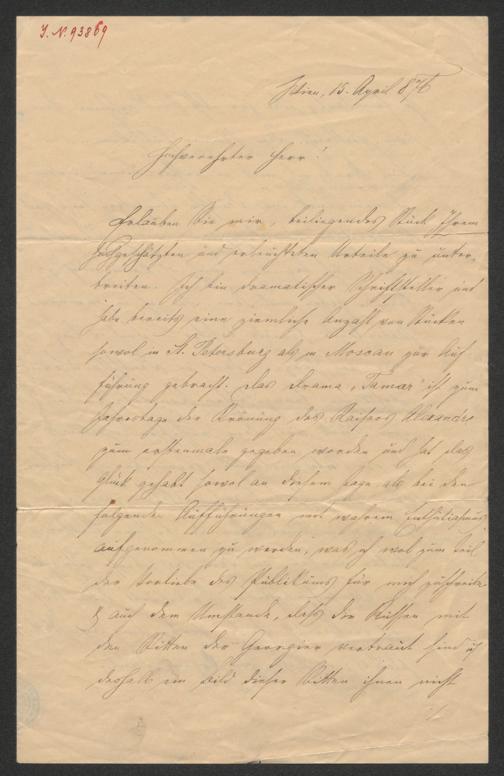 J. N. 93869
Wien, 15. April 876
Hochverehrter Herr!
Erlauben Sie mir, beiliegendes Stück Ihrem
hochgeschätzten und erleuchteten Urteile zu unter-
breiten. Ich bin dramatischer Schriftsteller und
habe bereits eine ziemliche Anzahl von Stücken
sowol in St. Petersburg als in Moscau zur Auf
führung gebracht. Das Drama „Tamar" ist zum
Jahrestage der Krönung des Kaisers Alexander
zum erstenmale gegeben worden und hat das
Glück gehabt sowol an diesem Tage als bei den
folgenden Aufführungen mit wahrem Enthusiasmus
aufgenommen zu werden, was ich wol zum Teil
der Vorliebe des Publikums für mich zuschreibe
& auch dem Umstande, daß die Russen mit
den Sitten der Georgier vertraut sind &
deshalb ein Bild dieser Sitten ihnen nicht